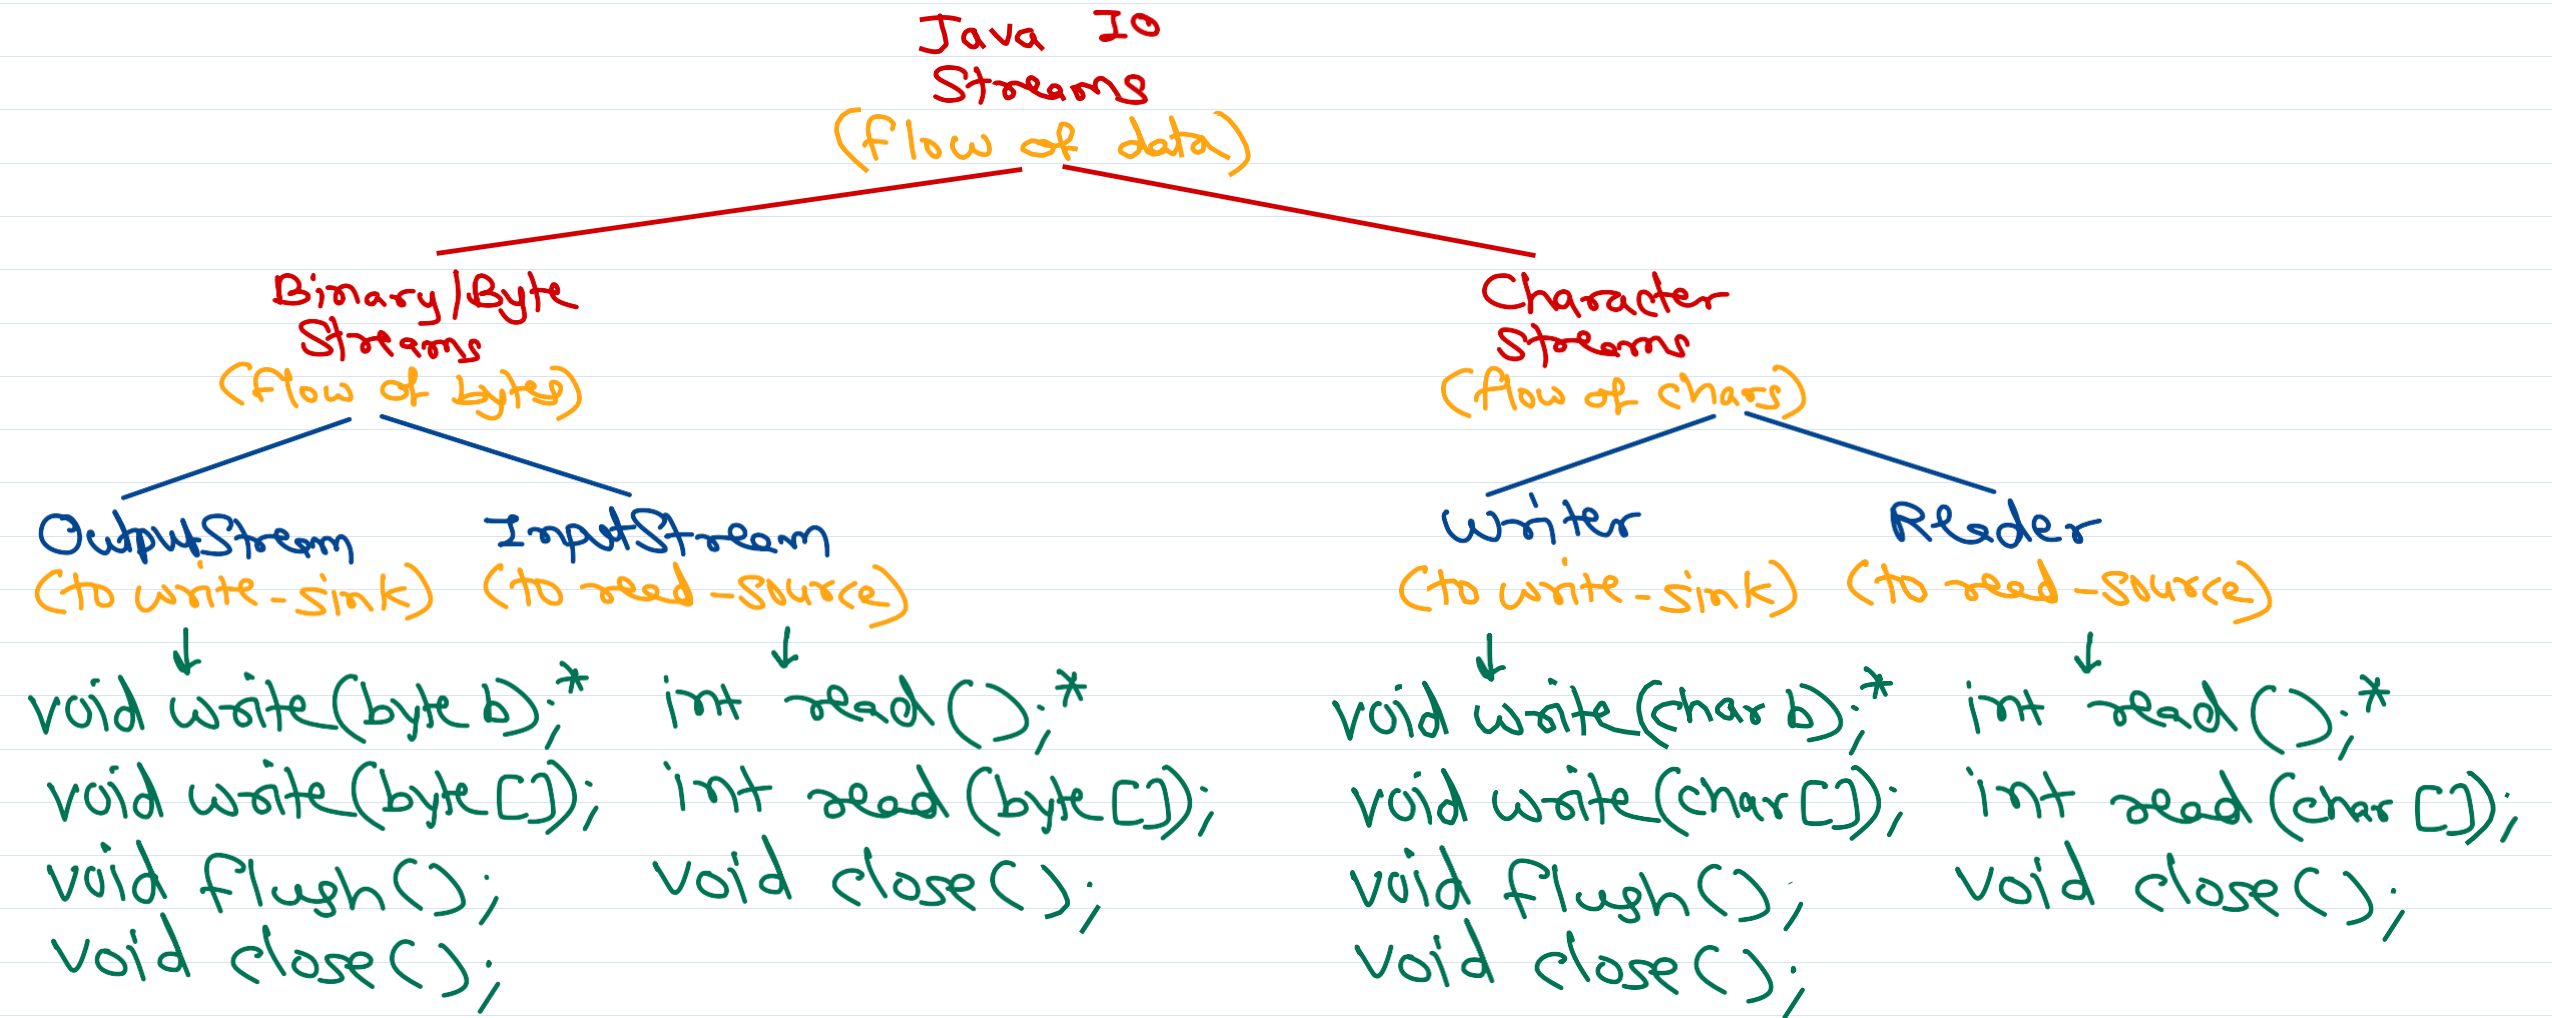 Java IO
Streams
(flow of data)
Binary/Byte
Streams
(flow of bytes)
Character
Streams
(flow of chars)
OutputStream
(to write-sink)
InputStream
(to read-source)
Writer
(to write-sink)
Reader
(to read-source)
void write(byte b);*
void write(byte[]);
void flush();
void close();
int read();*
int read(byte[]);
void close();
void write(char b);*
void write(char[]);
void flush();
void close();
int read();*
int read(char[]);
void close();